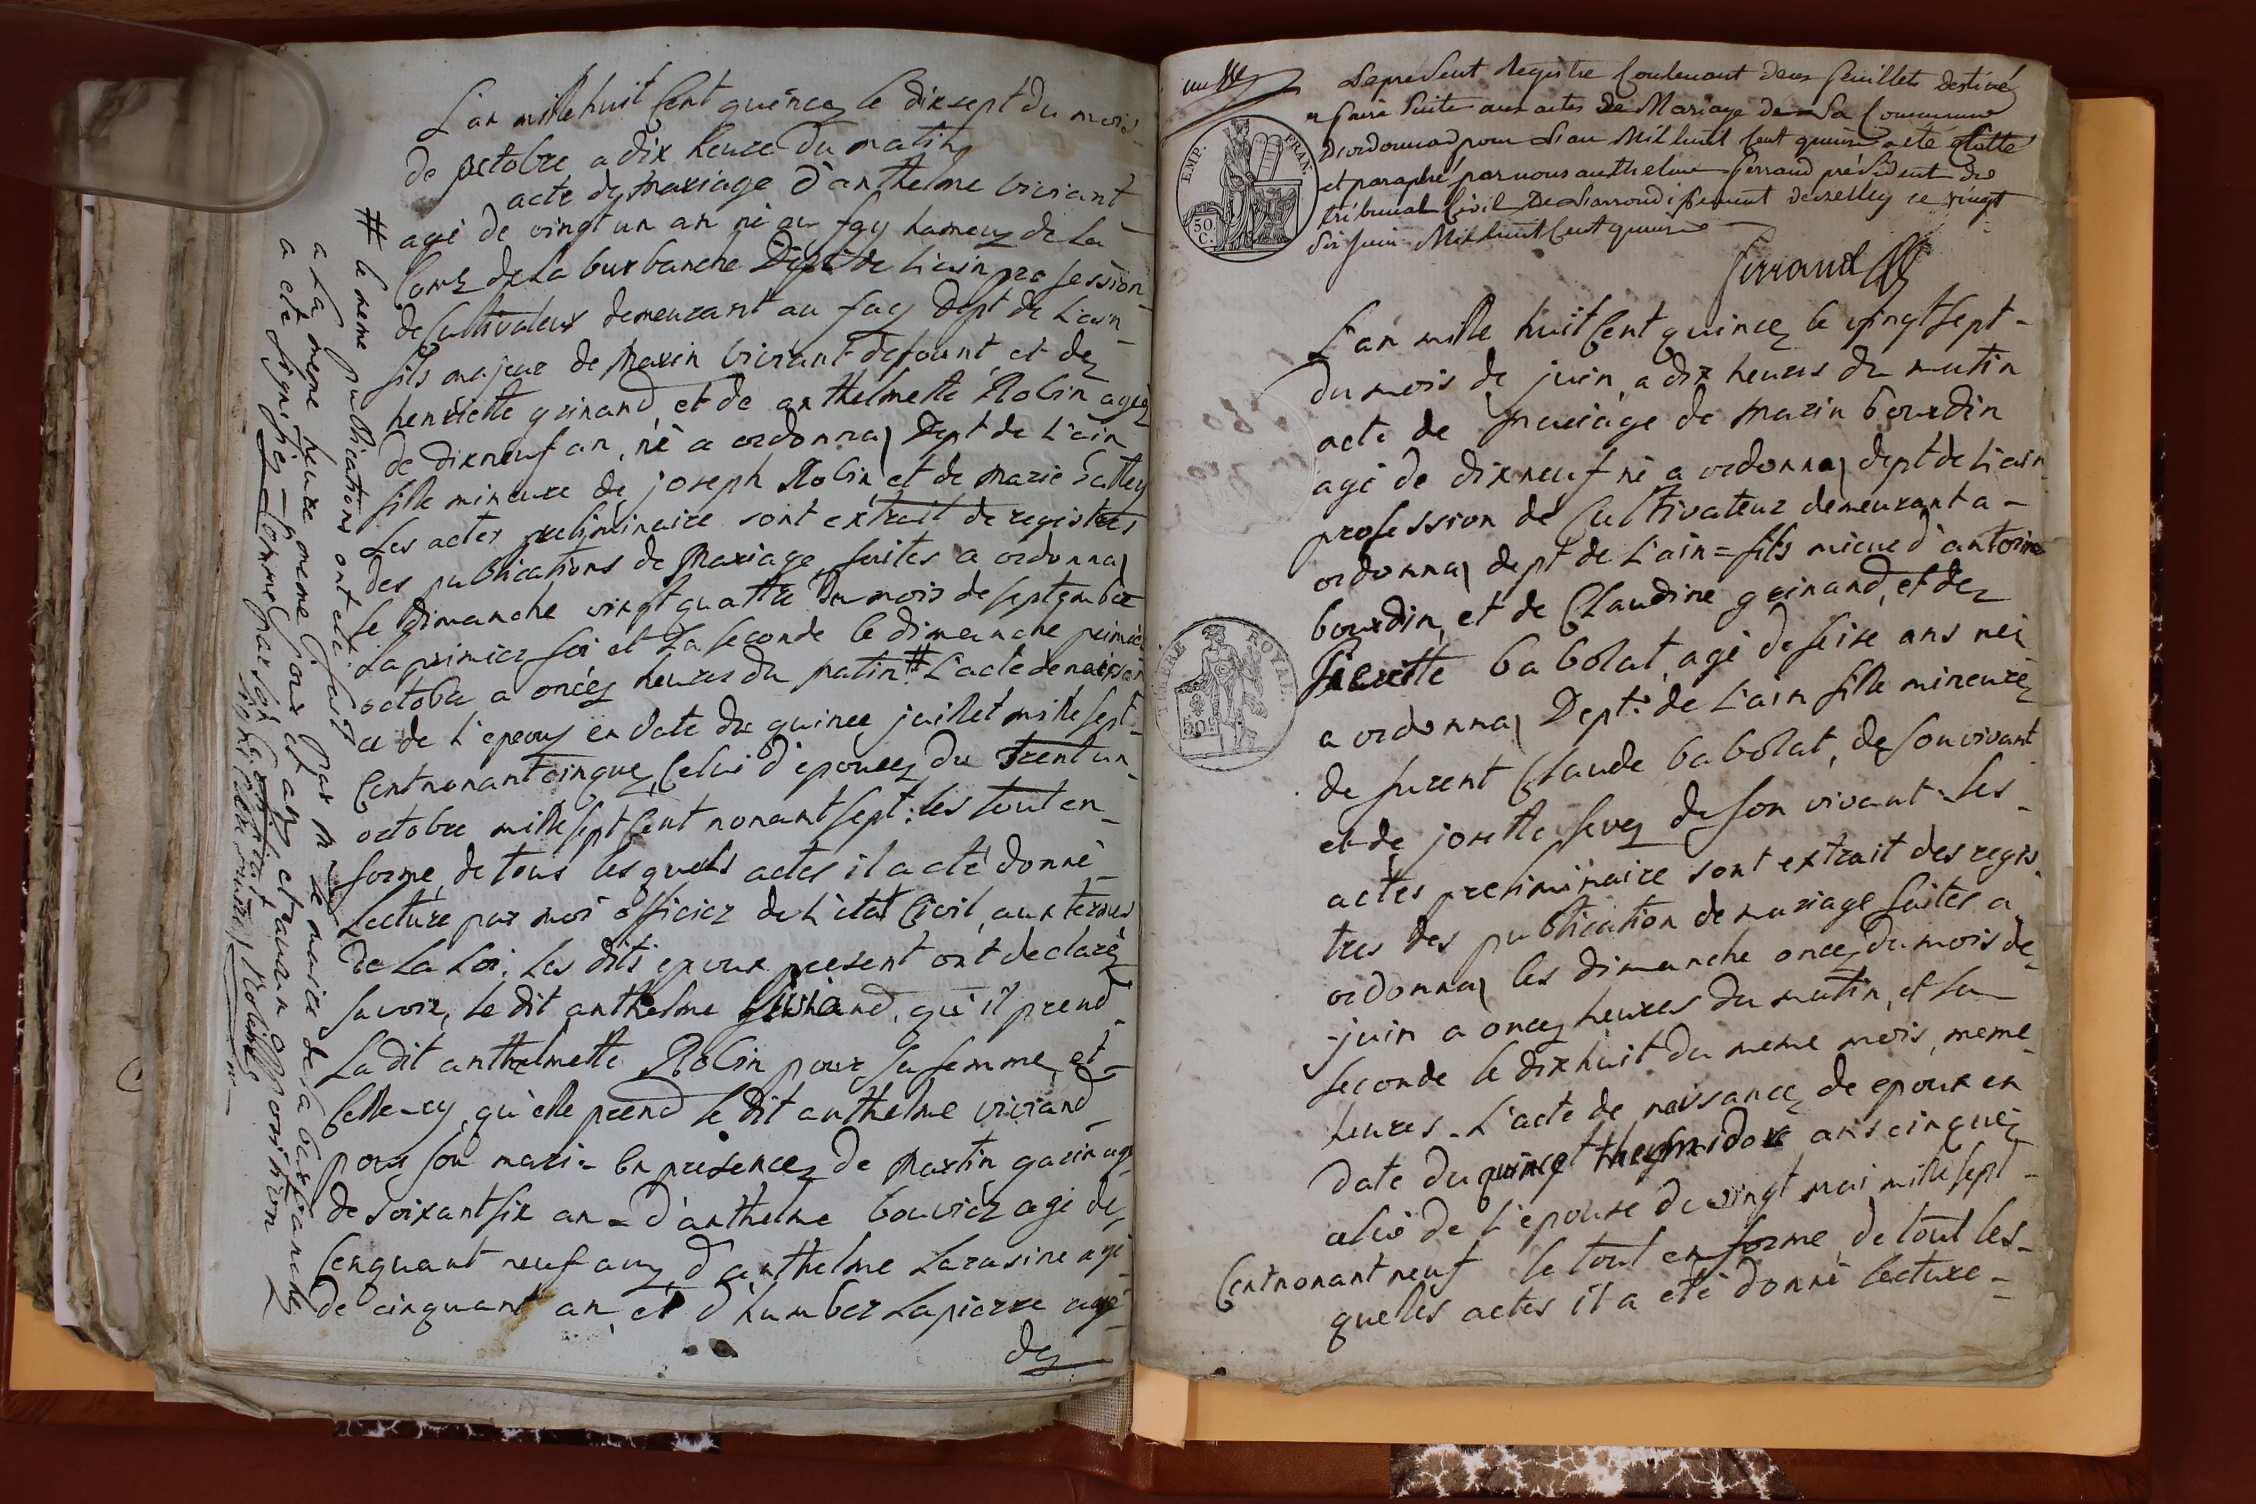 L'an mille huit Cent quince le dix sept du mois
de octobre a dix heure du matin
acte de mariage d'anthelme viviant
agé de vingt un an né au fay hameuz de la
Com.e de La burbanche Dept de L'ain profession
de Cultivateur demeurant au fay Dept de L'ain
fils majeur de marin viviant defount, et de
henriette guinand, et de anthelmette Robin agée
de dix neuf an, né a ordonnaz Dept de L'ain
fille mineure de joseph Robin et de marie
Les actes preliminaire sont extrait de registres
des publications de mariage faites a ordonnaz
le dimanche vingt quattre du mois de septembre
La premier foi et La seconde le dimanche premier
octobre a oncez heures du matin # L'acte de naissan
ce de l'epoux en date du quince juillet mille sept
Cent nonant cinque, Celui d'epouse du trent un
octobre mille sept Cent nonant sept: les tout en
forme, de tous les quels actes il a eté donné
Lecture par moi officier de L'etat Civil, aux termes
de La Loi. Les dits epoux present ont declaré
savoir, le dit anthelme qu'il prend
La dit anthelmette Robin pour sa femme, et
Celle-cy, qu'elle prend le dit anthelme viviand
pour son mari - En presence de martin garin agé
de soixant six an = d'anthelme bouvier agé de
Cenquant neuf anz, d'anthelme Larasine agé
de cinquant an, et d'humber Lapierre agé
de
# le meme publications ont eté fait par m. le maire de la burbanche
a La meme heure meme jour et an, et aucun opposition
a eté signifiez - Comme par son Certificat
signé Robin
Le present Registre Contenant deux feuillets destiné
a faire Suite aux actes de Mariage de La Commune
D'ordonnad pour L'an Mil huit Cent quinze a été Cotté
et paraphé par nous anthelme ferrand président du
tribunal Civil De L'arrondissement de Belley ce vingt
six Juin Mil huit Cent quinze
ferrand
EMP. FRAN.
50 C.
TIMBRE ROYAL
50 C
L'an mille huit Cent quince le vingt sept
du mois de juin a dix heures du matin
acte de mariage de marin bourdin
agé de dix neuf né a ordonnaz dept de L'ain
profession de Cultivateur demeurant a
ordonnaz dept de L'ain = fils mieur d'antoine
bourdin, et de Claudine guinand, et de
babolat, agé de seise ans neé
a ordonnaz Dept. de L'ain fille mineure
de furent Claude babolat, de son vivant
et de josette sevez de son vivant - les
actes preliminaire sont extrait des regis
tres des publication de mariage faites a
ordonnaz les dimanche once du mois de
juin a oncez heures du matin, et La
seconde le dix huit du meme mois, meme
heures - L'acte de naissance de epoux en
date du thermidor ans cinque
celui de L'epouse du vingt mai mille sept
Cent nonant neuf le tout en forme, de tout les
quelles actes il a eté donné lecture